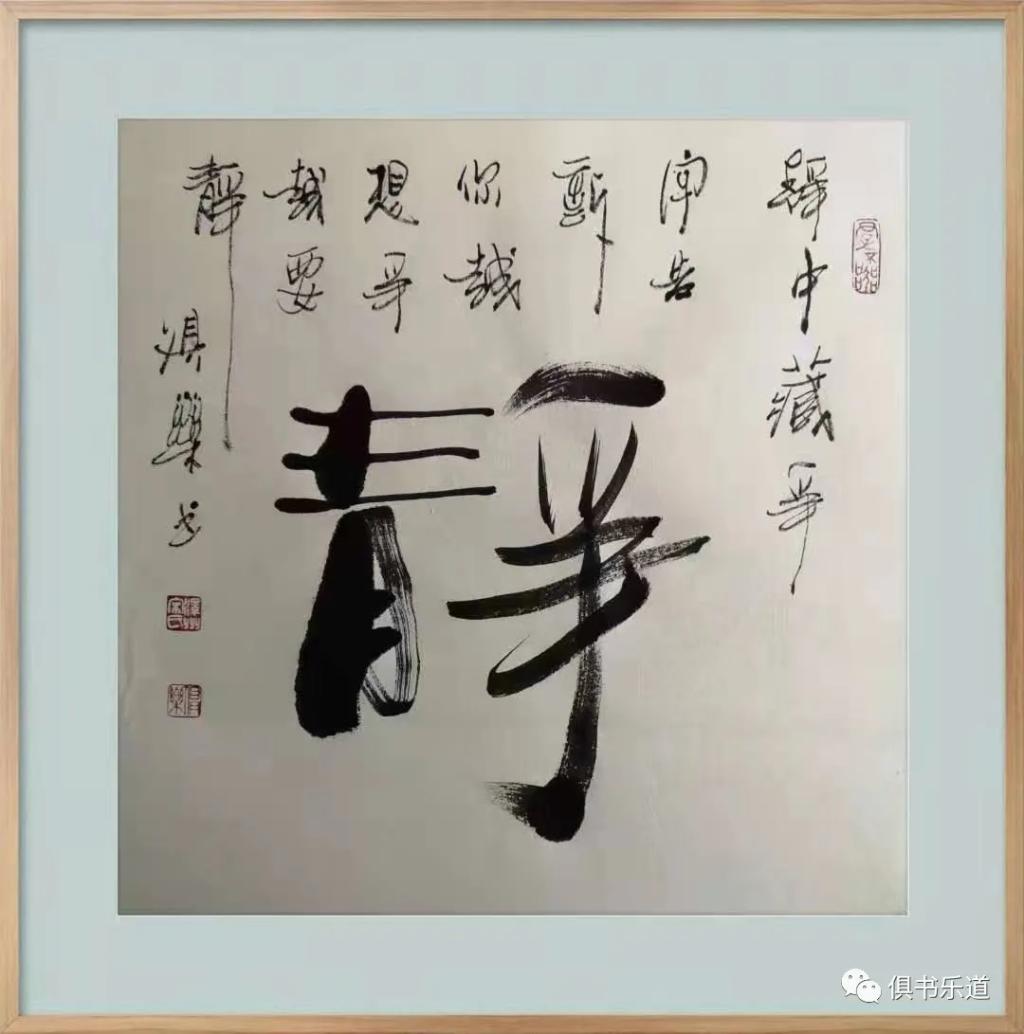 静中藏争
字告
訴
你越
想争
越要
静
静
俱樂书
俱书乐道